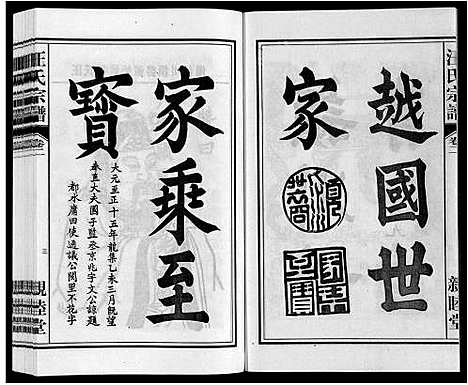 汪氏宗譜
卷二
親睦堂
越國世
家
家乘至
寳
大元至正十五年龍集乙未三月既望
奉直大夫國子監丞京兆宇文公諒題
都水庸田使通議公閥里不花字
汪氏宗譜
卷二
三
親睦堂